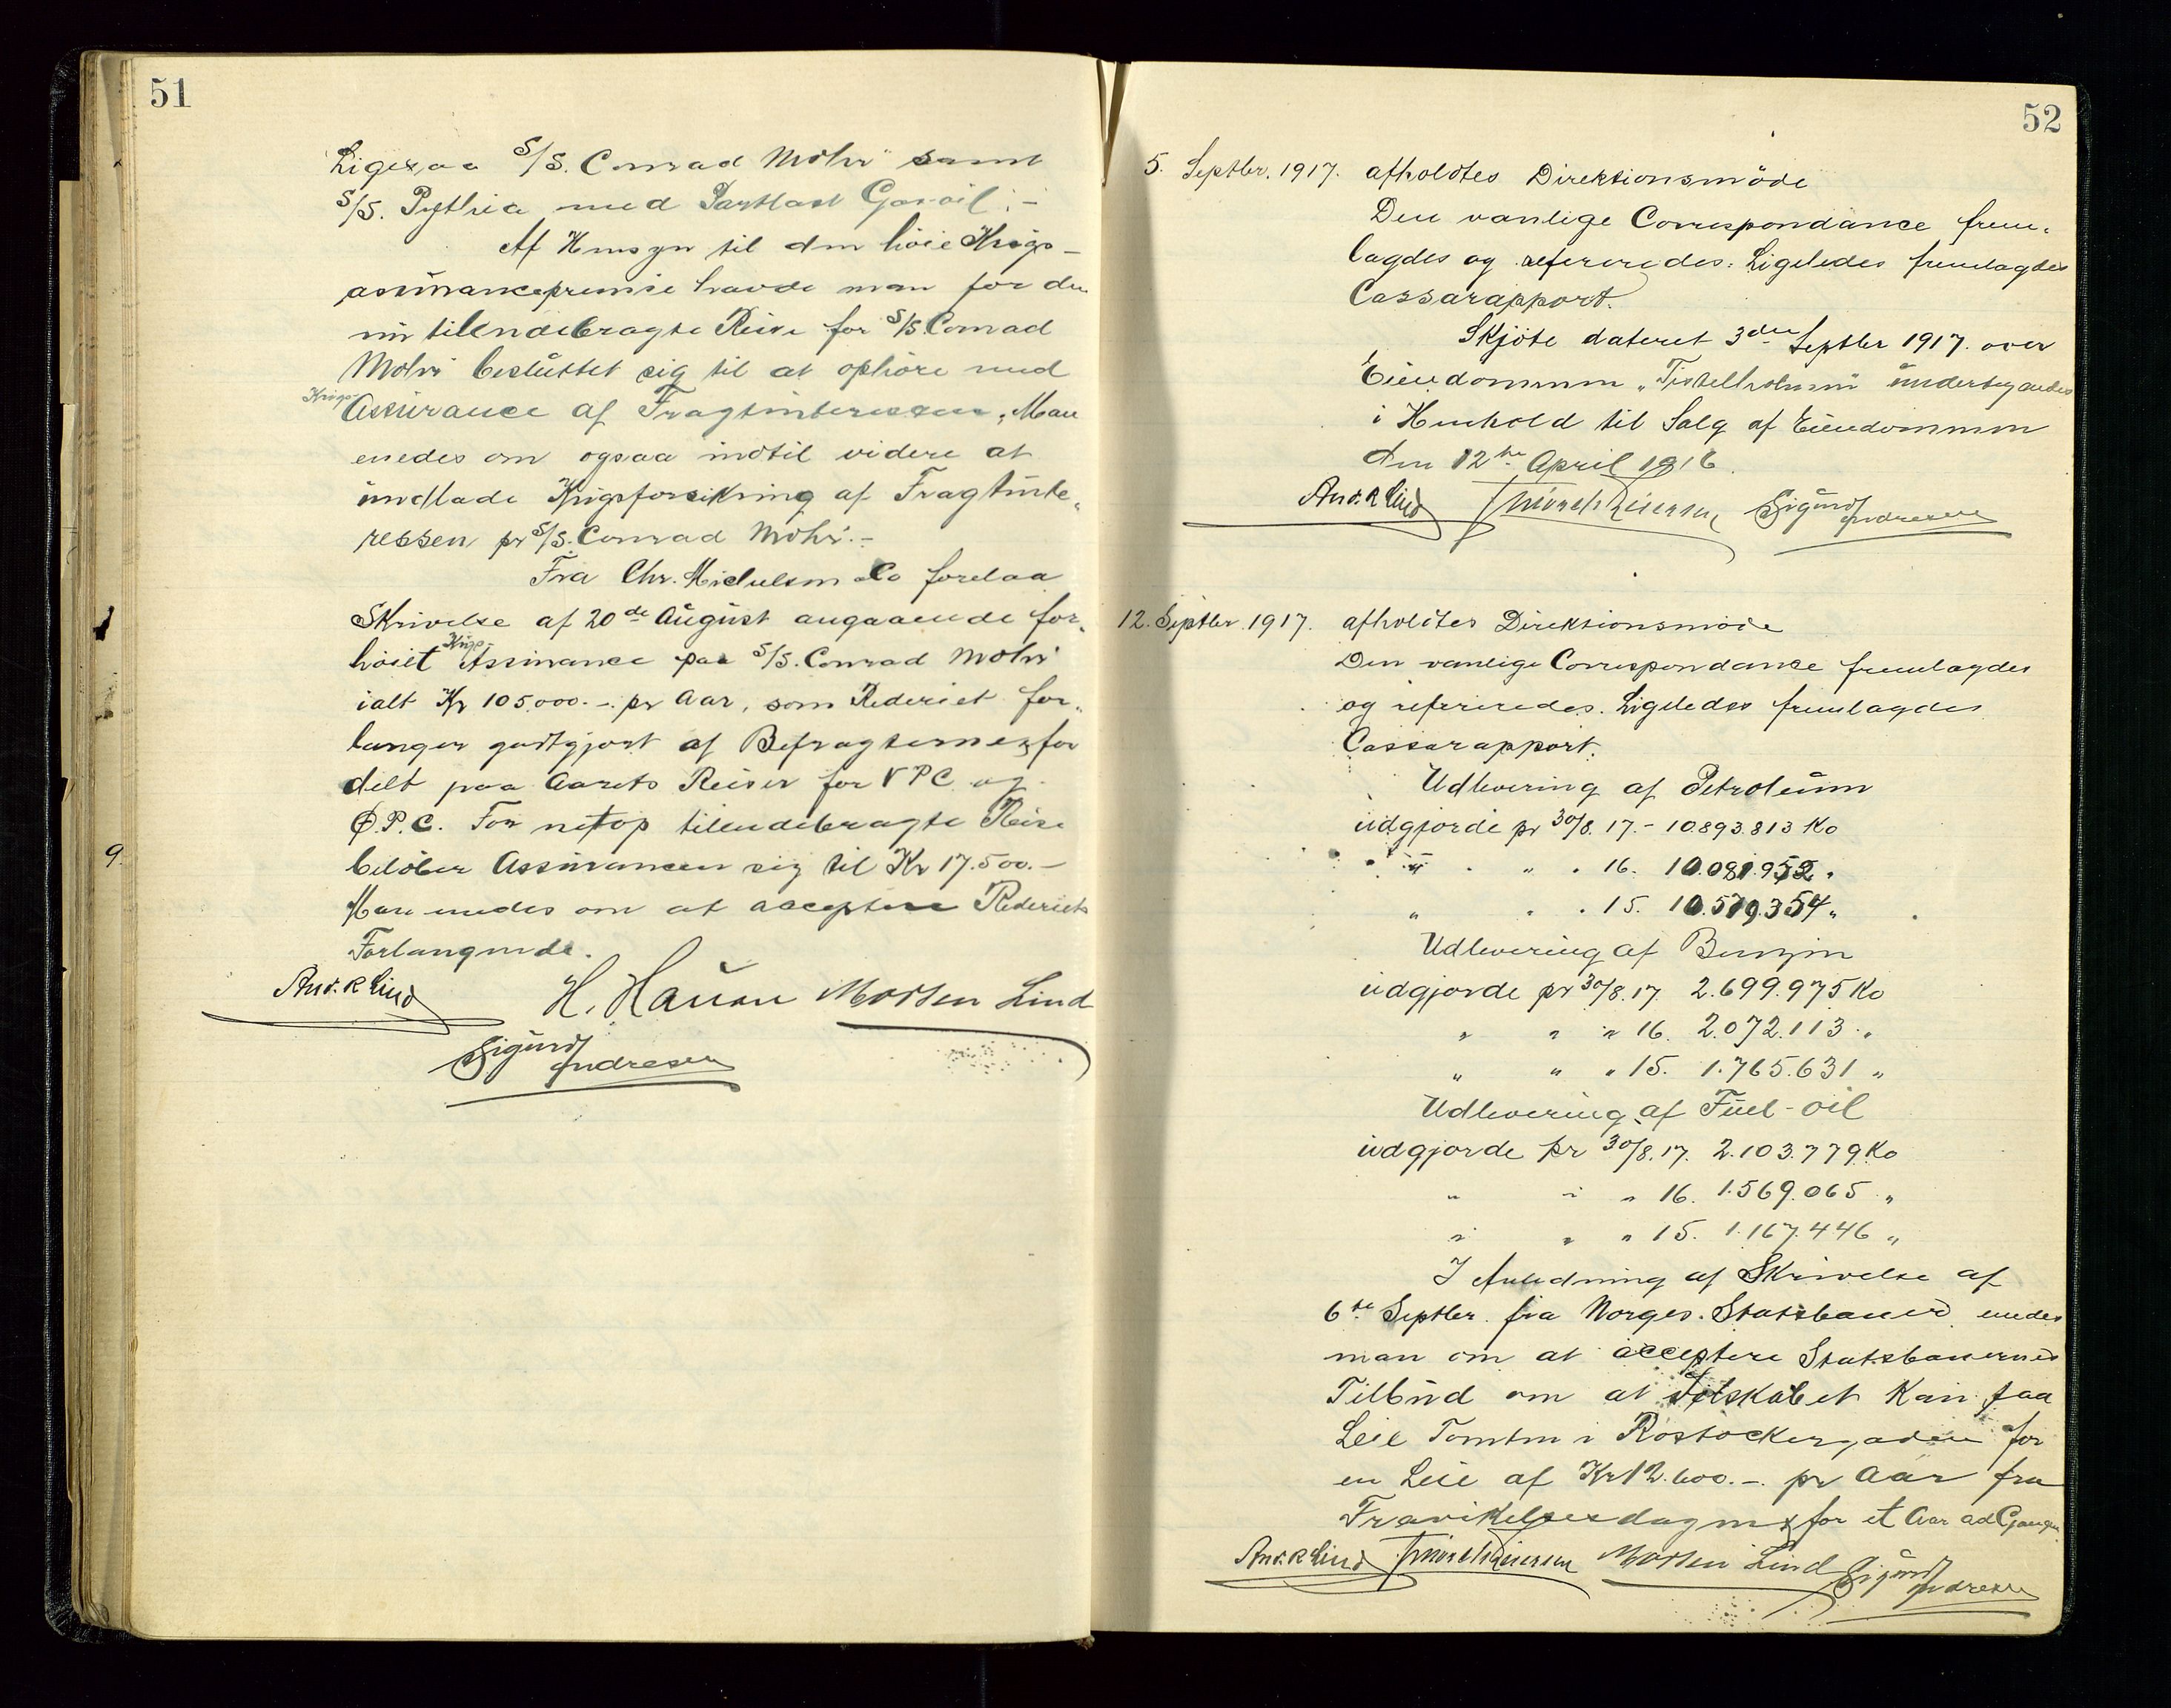 51
Ligesaa S/S. Conrad Mohr" samt
S/S. Pythia med Partlast Gasoil:-
Af Hensyn til den høie Krigs-
assürancepremie havde man for den
nü tilendebragte Reise for S/S. Conrad
Mohr beslüttet sig til at ophöre med
Krigs-
Assürance af Fragtinteressen. Man
enedes om ogsaa indtil videre at
ündlade Krigsforsikring af Fragtinte-
ressen pr S/S. Conrad Mohr.-
Fra Chr. Michelsen & Co forelaa
Skrivelse af 20de Aügüst angaaende for-
Krigs-
höiet Assürance paa S/S. Conrad Mohr
ialt Kr 105,000.-. pr Aar, som Rederiet for-
langer godtgjort af Befragterne, for
delt paa Aarets Reiser for V P C og
Ø.P.C. For netop tilendebragte Reise
belöber Assürancen sig til Kr 17.500.-
Man enedes om at acceptere Rederiets
Forlangende.
And. R Lind H. Hauan Morten Lind
Sigürd Andresen
9
52
5. Septbr. 1917. afholdtes Direktionsmöde
Den vanlige Correspondance frem-
lagdes og refereredes. Ligeledes fremlagdes
Cassarapport.
Skjöte dateret 3die Septbr 1917. over
Eiendommen "Tistelholmen" ündertegnedes
i Henhold til Salg af Eiendommen
den 12te April 1916.
And. R Lind Sigürd Andresen
12. Septbr. 1917. afholdtes Direktionsmöde
Den vanlige Correspondance fremlagdes
og refereredes. Ligeledes fremlagdes
Cassarapport.
Udlevering af Petroleüm
üdgjorde pr 30/8. 17.- 10.893.813 Ko
" " " 16. 10.081.952 "
" " " 15. 10.579.354 "
Udlevering af Benzin
üdgjorde pr 30/8. 17. 2.699.975 Ko
" " " 16. 2.072.113 "
" " " 15. 1.765.631 "
Udlevering af Füel-oil
üdgjorde pr 30/8. 17. 2.103.779 Ko
" " " 16. 1.569.065 "
" " " 15. 1.167.446 "
I Anledning af Skrivelse af
6te Septbr. fra Norges Statsbaner enedes
man om at acceptere Statsbanernes
Tilbüd om at Selskabet kan faa
Leie Tomten i Rostockergaden for
en Leie af Kr 12.600.-. pr Aar fra
Fravikelsesdagen, for et Aar ad Gangen
And. R Lind Morten Lind Sigürd Andresen